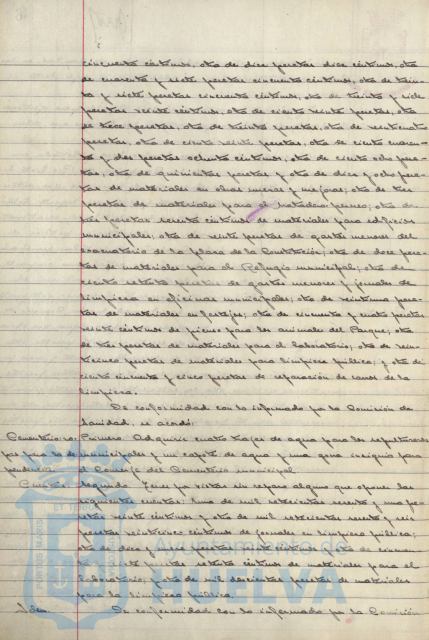 cincuenta céntimos, otra de diez pesetas diez céntimos, otra
de cuarenta y siete pesetas cincuenta céntimos, otra de trein-
ta y siete pesetas cincuenta céntimos, otra de treinta y siete
pesetas veinte céntimos, otra de ciento veinte pesetas, otra
de trece pesetas, otra de treinta pesetas, otra de veinticuatro
pesetas, otra de ciento veinte pesetas, otra de ciento cuaren-
ta y dos pesetas ochenta céntimos, otra de ciento ocho pese-
tas, otra de quinientas pesetas y otra de diez y ocho pese-
tas de materiales en obras nuevas y mejoras; otra de tres
pesetas de materiales para el matadero; otra de
tres pesetas sesenta céntimos de materiales para edificios
municipales; otra de veinte pesetas de gastos menores del
evacuatorio de la plaza de la Constitución; otra de doce pese-
tas de materiales para el Refugio municipal; otra de
ciento setenta pesetas de gastos menores y jornales de
limpieza en oficinas municipales; otra de veintiuna pese-
tas de materiales en festejos; otra de cincuenta y cuatro pesetas
veinte céntimos de pienso para los animales del Parque; otra
de tres pesetas de materiales para el laboratorio; otra de vein-
ticinco pesetas de materiales para limpieza pública; y otra de
ciento cincuenta y cinco pesetas de reparación de carros de la
limpieza.
De conformidad con lo informado por la Comisión de
Sanidad, se acordó:
Cementerio: ro- Primero. Adquirir cuatro trajes de agua para los sepultureros
pas para la de- municipales y un capote de agua y una gorra insignia para
pendencia. el Conserje del Cementerio municipal.
Cuentas. Segundo. Tener por vistas sin reparo alguno que oponer las
siguientes cuentas: Una de mil setecientas sesenta y una pe-
setas veinte céntimos y otra de mil setecientas sesenta y seis
pesetas veinticinco céntimos de jornales en limpieza pública;
otra de diez y pesetas otra de cincuen-
ta y siete pesetas setenta céntimos de materiales para el
laboratorio; y otra de mil doscientas pesetas de materiales
para la limpieza pública.
Idem. De conformidad con lo informado por la Comisión
Ayuntamiento de
HUELVA